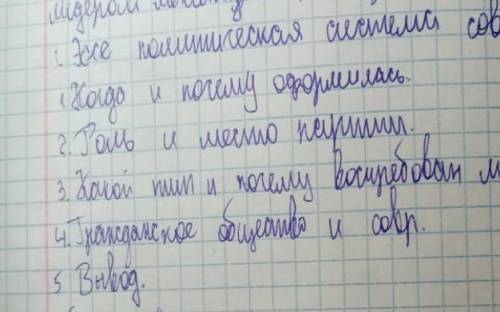 лидером
1. Эке политическая система сов
1. Когда и почему оформилась.
2. Роль и место партии.
3. Какой тип и почему востребован м
4. Гражданское общество и совр.
5. Вывод.